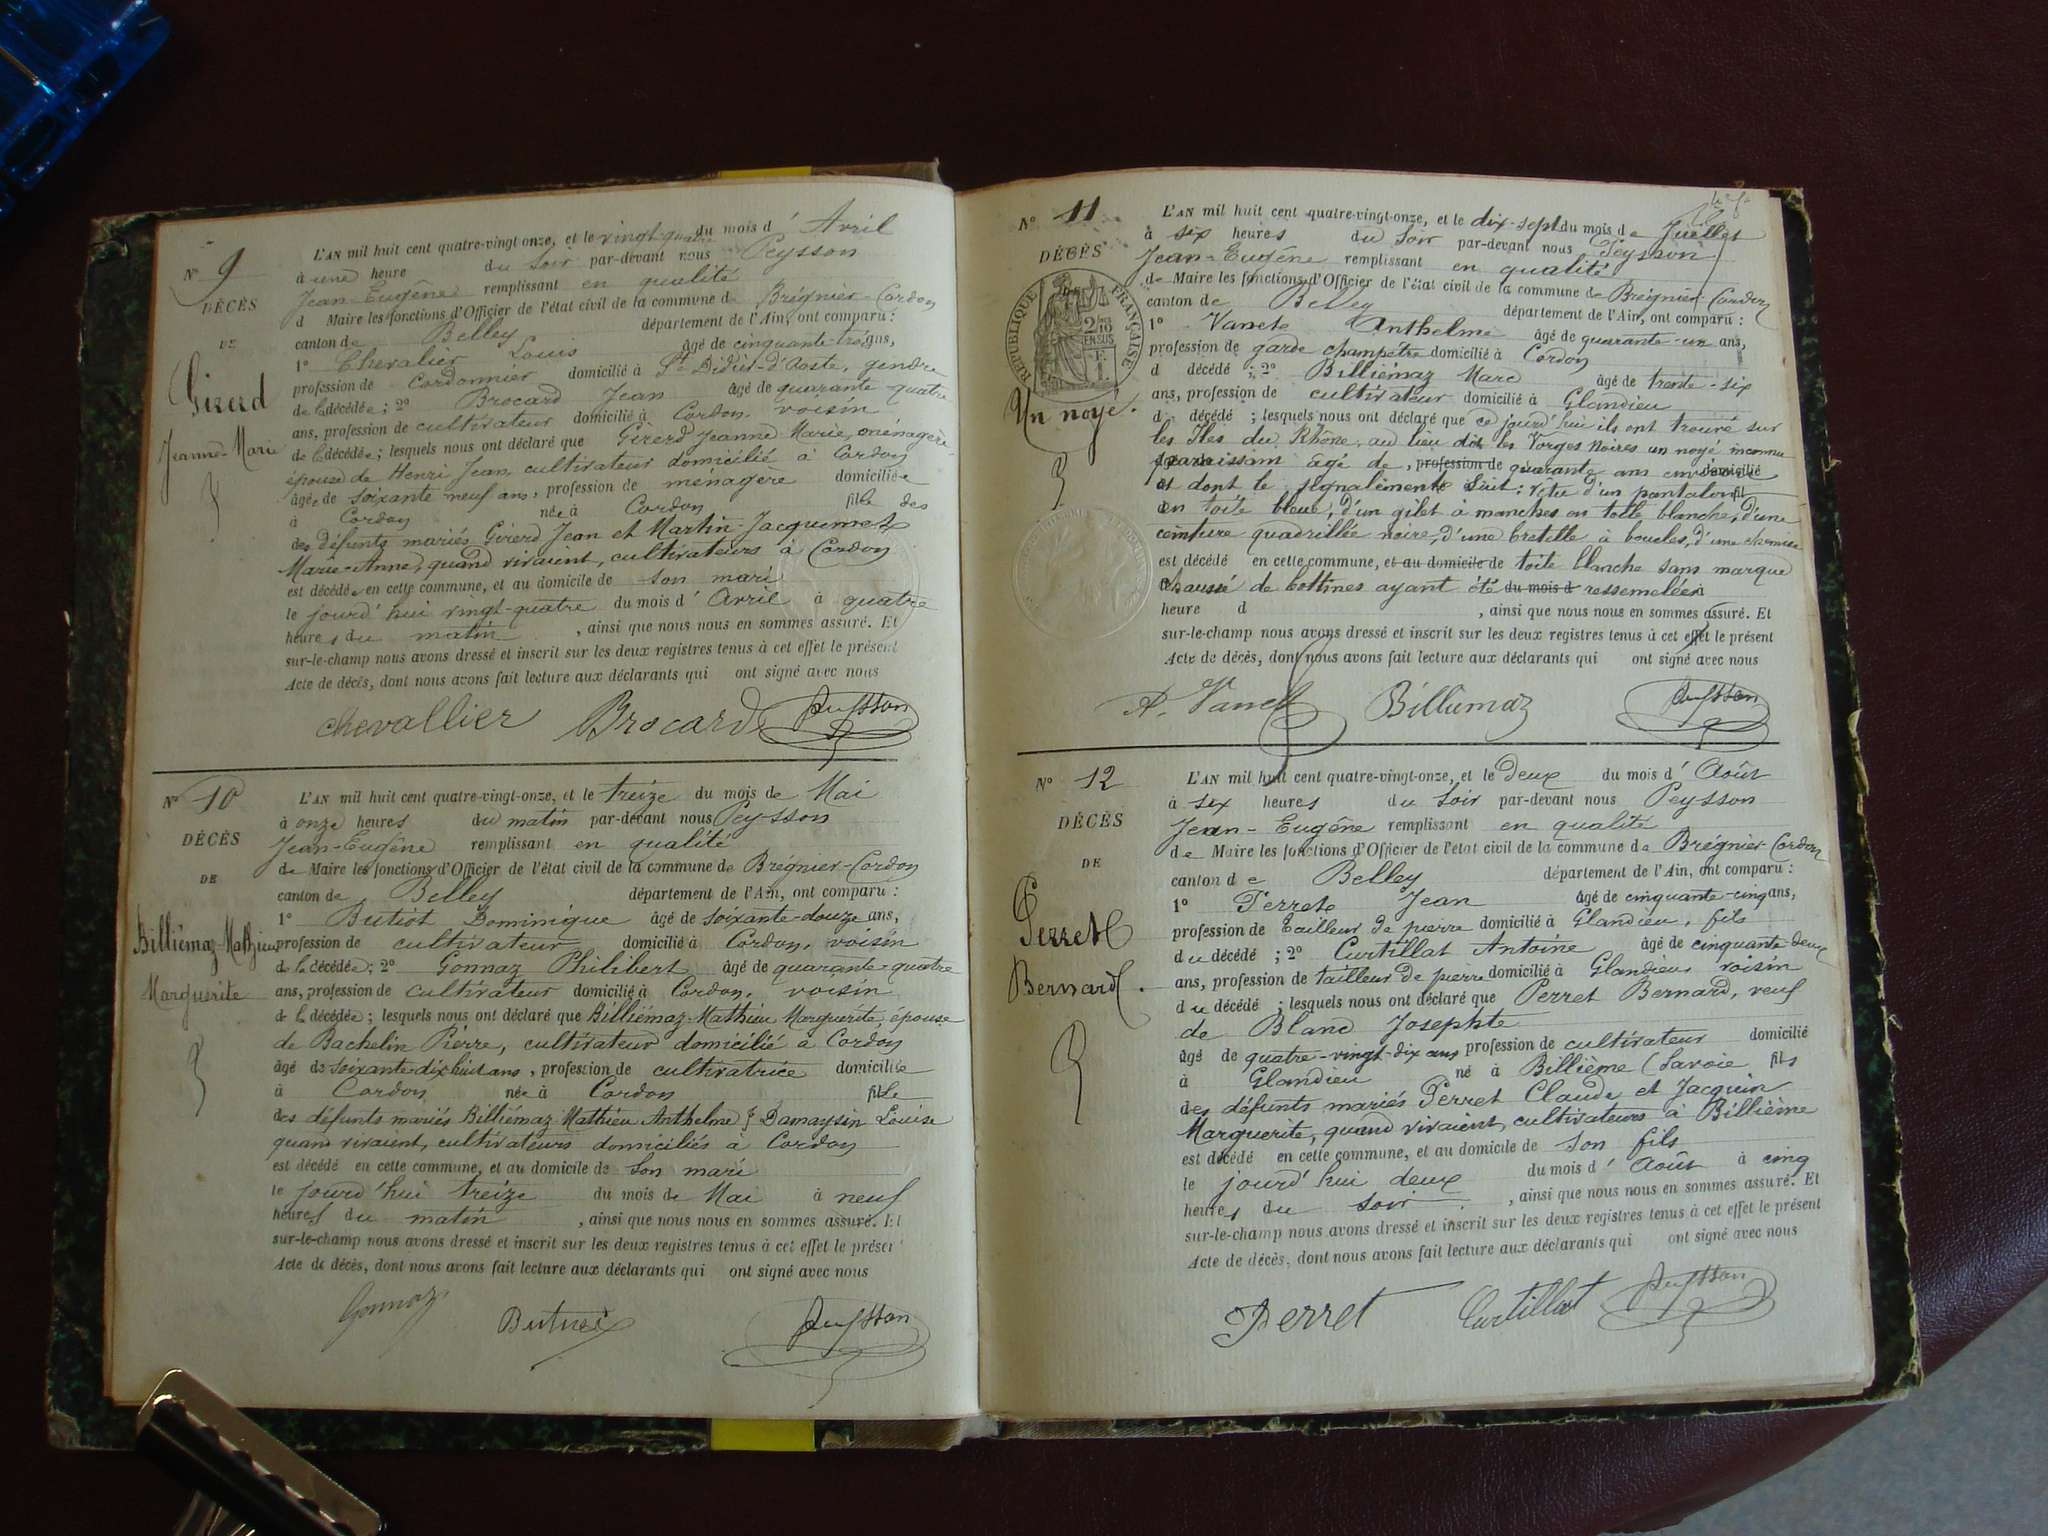 N° 9
DÉCÈS
DE
Girerd
Jeanne-Marie
L'AN mil huit cent quatre-vingt-onze, et le vingt-quatre du mois d' Avril
à une heure du soir par-devant nous Peysson
Jean-Eugène remplissant en qualité
d Maire les fonctions d'Officier de l'état civil de la commune d Brégnier-Cordon
canton de Belley département de l'Ain, ont comparu :
1° Chevalier Louis âgé de cinquante-trois ans,
profession de Cordonnier domicilié à St Didier-d'Aoste, gendre
de la décédée ; 2° Brocard Jean âgé de quarante-quatre
ans, profession de cultivateur domicilié à Cordon, voisin
de la décédée ; lesquels nous ont déclaré que Girerd Jeanne Marie, ménagère,
épouse de Henri Jean, cultivateur domicilié à Cordon
âgée de soixante neuf ans, profession de ménagère domiciliée
à Cordon née à Cordon fille des
des défunts mariés Girerd Jean et Martin-Jacquemet
Marie-Anne, quand vivaient, cultivateurs à Cordon
est décédée en cette commune, et au domicile de son mari
le jourd'hui vingt-quatre du mois d' Avril à quatre
heures du matin , ainsi que nous nous en sommes assuré. Et
sur-le-champ nous avons dressé et inscrit sur les deux registres tenus à cet effet le présent
Acte de décès, dont nous avons fait lecture aux déclarants qui ont signé avec nous
Chevallier Brocard Peysson
N° 10
DÉCÈS
DE
Billiémaz-Mathieu
Marguerite
L'AN mil huit cent quatre-vingt-onze, et le treize du mois de Mai
à onze heures du matin par-devant nous Peysson
Jean-Eugène remplissant en qualité
de Maire les fonctions d'Officier de l'état civil de la commune de Brégnier-Cordon
canton de Belley département de l'Ain, ont comparu :
1° Butiot Dominique âgé de soixante-douze ans,
profession de cultivateur domicilié à Cordon, voisin
de la décédée ; 2° Gonnaz Philibert âgé de quarante-quatre
ans, profession de cultivateur domicilié à Cordon, voisin
de la décédée ; lesquels nous ont déclaré que Billiémaz-Mathieu Marguerite, épouse
de Bachelin Pierre, cultivateur domicilié à Cordon
âgée de soixante-dix huit ans, profession de cultivatrice domiciliée
à Cordon née à Cordon fille
des défunts mariés Billiémaz-Mathieu Anthelme & Damaysin Louise
quand vivaient, cultivateurs domiciliés à Cordon
est décédé en cette commune, et au domicile de son mari
le jourd'hui treize du mois de Mai à neuf
heures du matin , ainsi que nous nous en sommes assuré. Et
sur-le-champ nous avons dressé et inscrit sur les deux registres tenus à cet effet le présent
Acte de décès, dont nous avons fait lecture aux déclarants qui ont signé avec nous
Gonnaz Peysson
N° 11
DÉCÈS
RÉPUBLIQUE FRANÇAISE
2/10 EN SUS
Un noyé.
L'AN mil huit cent quatre-vingt-onze, et le dix-sept du mois de Juillet
à six heures du soir par-devant nous Peysson
Jean-Eugène remplissant en qualité
de Maire les fonctions d'Officier de l'état civil de la commune de Brégnier-Cordon
canton de Belley département de l'Ain, ont comparu :
1° Vanet Anthelme âgé de quarante-un ans,
profession de garde champêtre domicilié à Cordon
d décédé ; 2° Billiémaz Marc âgé de trente-six
ans, profession de cultivateur domicilié à Glandieu
d décédé ; lesquels nous ont déclaré que ce jourd'hui ils ont trouvé sur
les Iles du Rhône, au lieu dit les Vorges Noires un noyé inconnu
paraissant âgé de , profession de quarante ans environ domicilié
et dont le signalement suit : vêtu d'un pantalon fil
en toile bleue, d'un gilet à manches en toile blanche, d'une
ceinture quadrillée noire, d'une bretelle à boucles, d'une chemise
est décédé en cette commune, et au domicile de toile blanche sans marque
chaussé de bottines ayant été du mois d ressemelées à
heure d , ainsi que nous nous en sommes assuré. Et
sur-le-champ nous avons dressé et inscrit sur les deux registres tenus à cet effet le présent
Acte de décès, dont nous avons fait lecture aux déclarants qui ont signé avec nous
A. Vanet Billiemaz Peysson
N° 12
DÉCÈS
DE
Perret
Bernard.
L'AN mil huit cent quatre-vingt-onze, et le deux du mois d' Août
à six heures du soir par-devant nous Peysson
Jean-Eugène remplissant en qualité
de Maire les fonctions d'Officier de l'état civil de la commune de Brégnier-Cordon
canton de Belley département de l'Ain, ont comparu :
1° Perret Jean âgé de cinquante-cinq ans,
profession de tailleur de pierre domicilié à Glandieu, fils
du décédé ; 2° Curtillat Antoine âgé de cinquante-deux
ans, profession de tailleur de pierre domicilié à Glandieu voisin
du décédé ; lesquels nous ont déclaré que Perret Bernard, veuf
de Blanc Josephte
âgé de quatre-vingt-dix ans profession de cultivateur domicilié
à Glandieu né à Billième (Savoie fils
des défunts mariés Perret Claude et Jacquin
Marguerite, quand vivaient, cultivateurs à Billième
est décédé en cette commune, et au domicile de son fils
le jourd'hui deux du mois d' Août à cinq
heures du soir , ainsi que nous nous en sommes assuré. Et
sur-le-champ nous avons dressé et inscrit sur les deux registres tenus à cet effet le présent
Acte de décès, dont nous avons fait lecture aux déclarants qui ont signé avec nous
Perret Curtillat Peysson